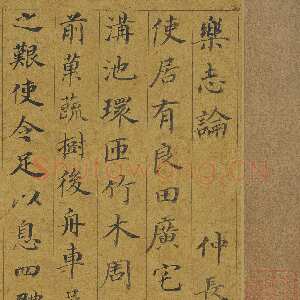 樂志論　仲長
使居有良田廣宅
溝池環匝竹木周
前菓蔬樹後舟車
之艱使令足以息四體